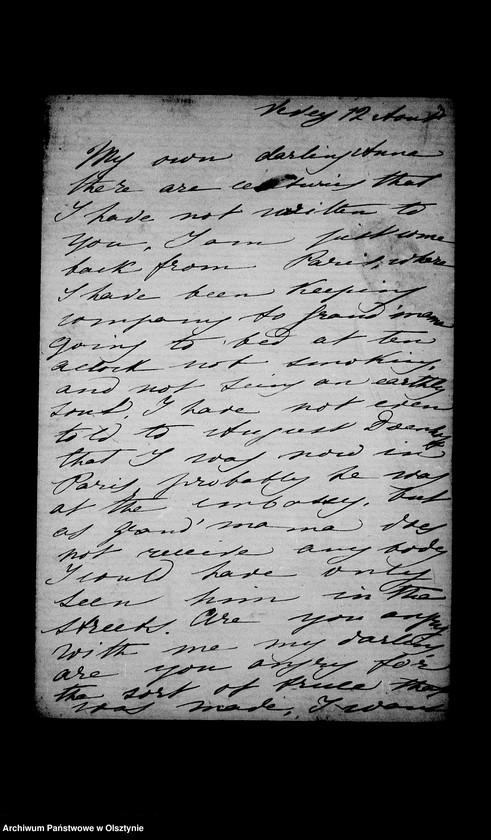 Vevey 12 Août
My own darling Anna
there are centuries that
I have not written to
you. I am just come
back from Paris, where
I have been keeping
company to grand'mama
going to bed at ten
oclock not smoking,
and not seing an earthly
soul. I have not even
told to August
that I was now in
Paris, probably he was
at the embassy. but
as grand'mama does
not receive any body
I could have only
seen him in the
streets. Are you angry
with me my darling
are you angry for
the sort of truce that
was made, I was
Archiwum Państwowe w Olsztynie